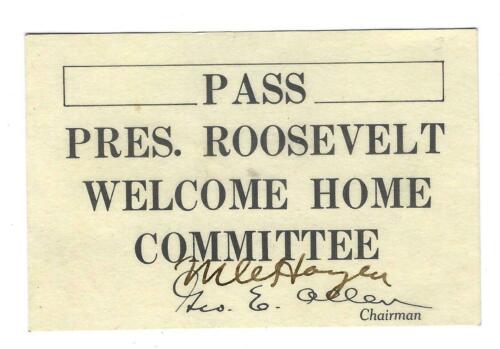 PASS
PRES. ROOSEVELT
WELCOME HOME
COMMITTEE
Geo. E. Allen
Chairman